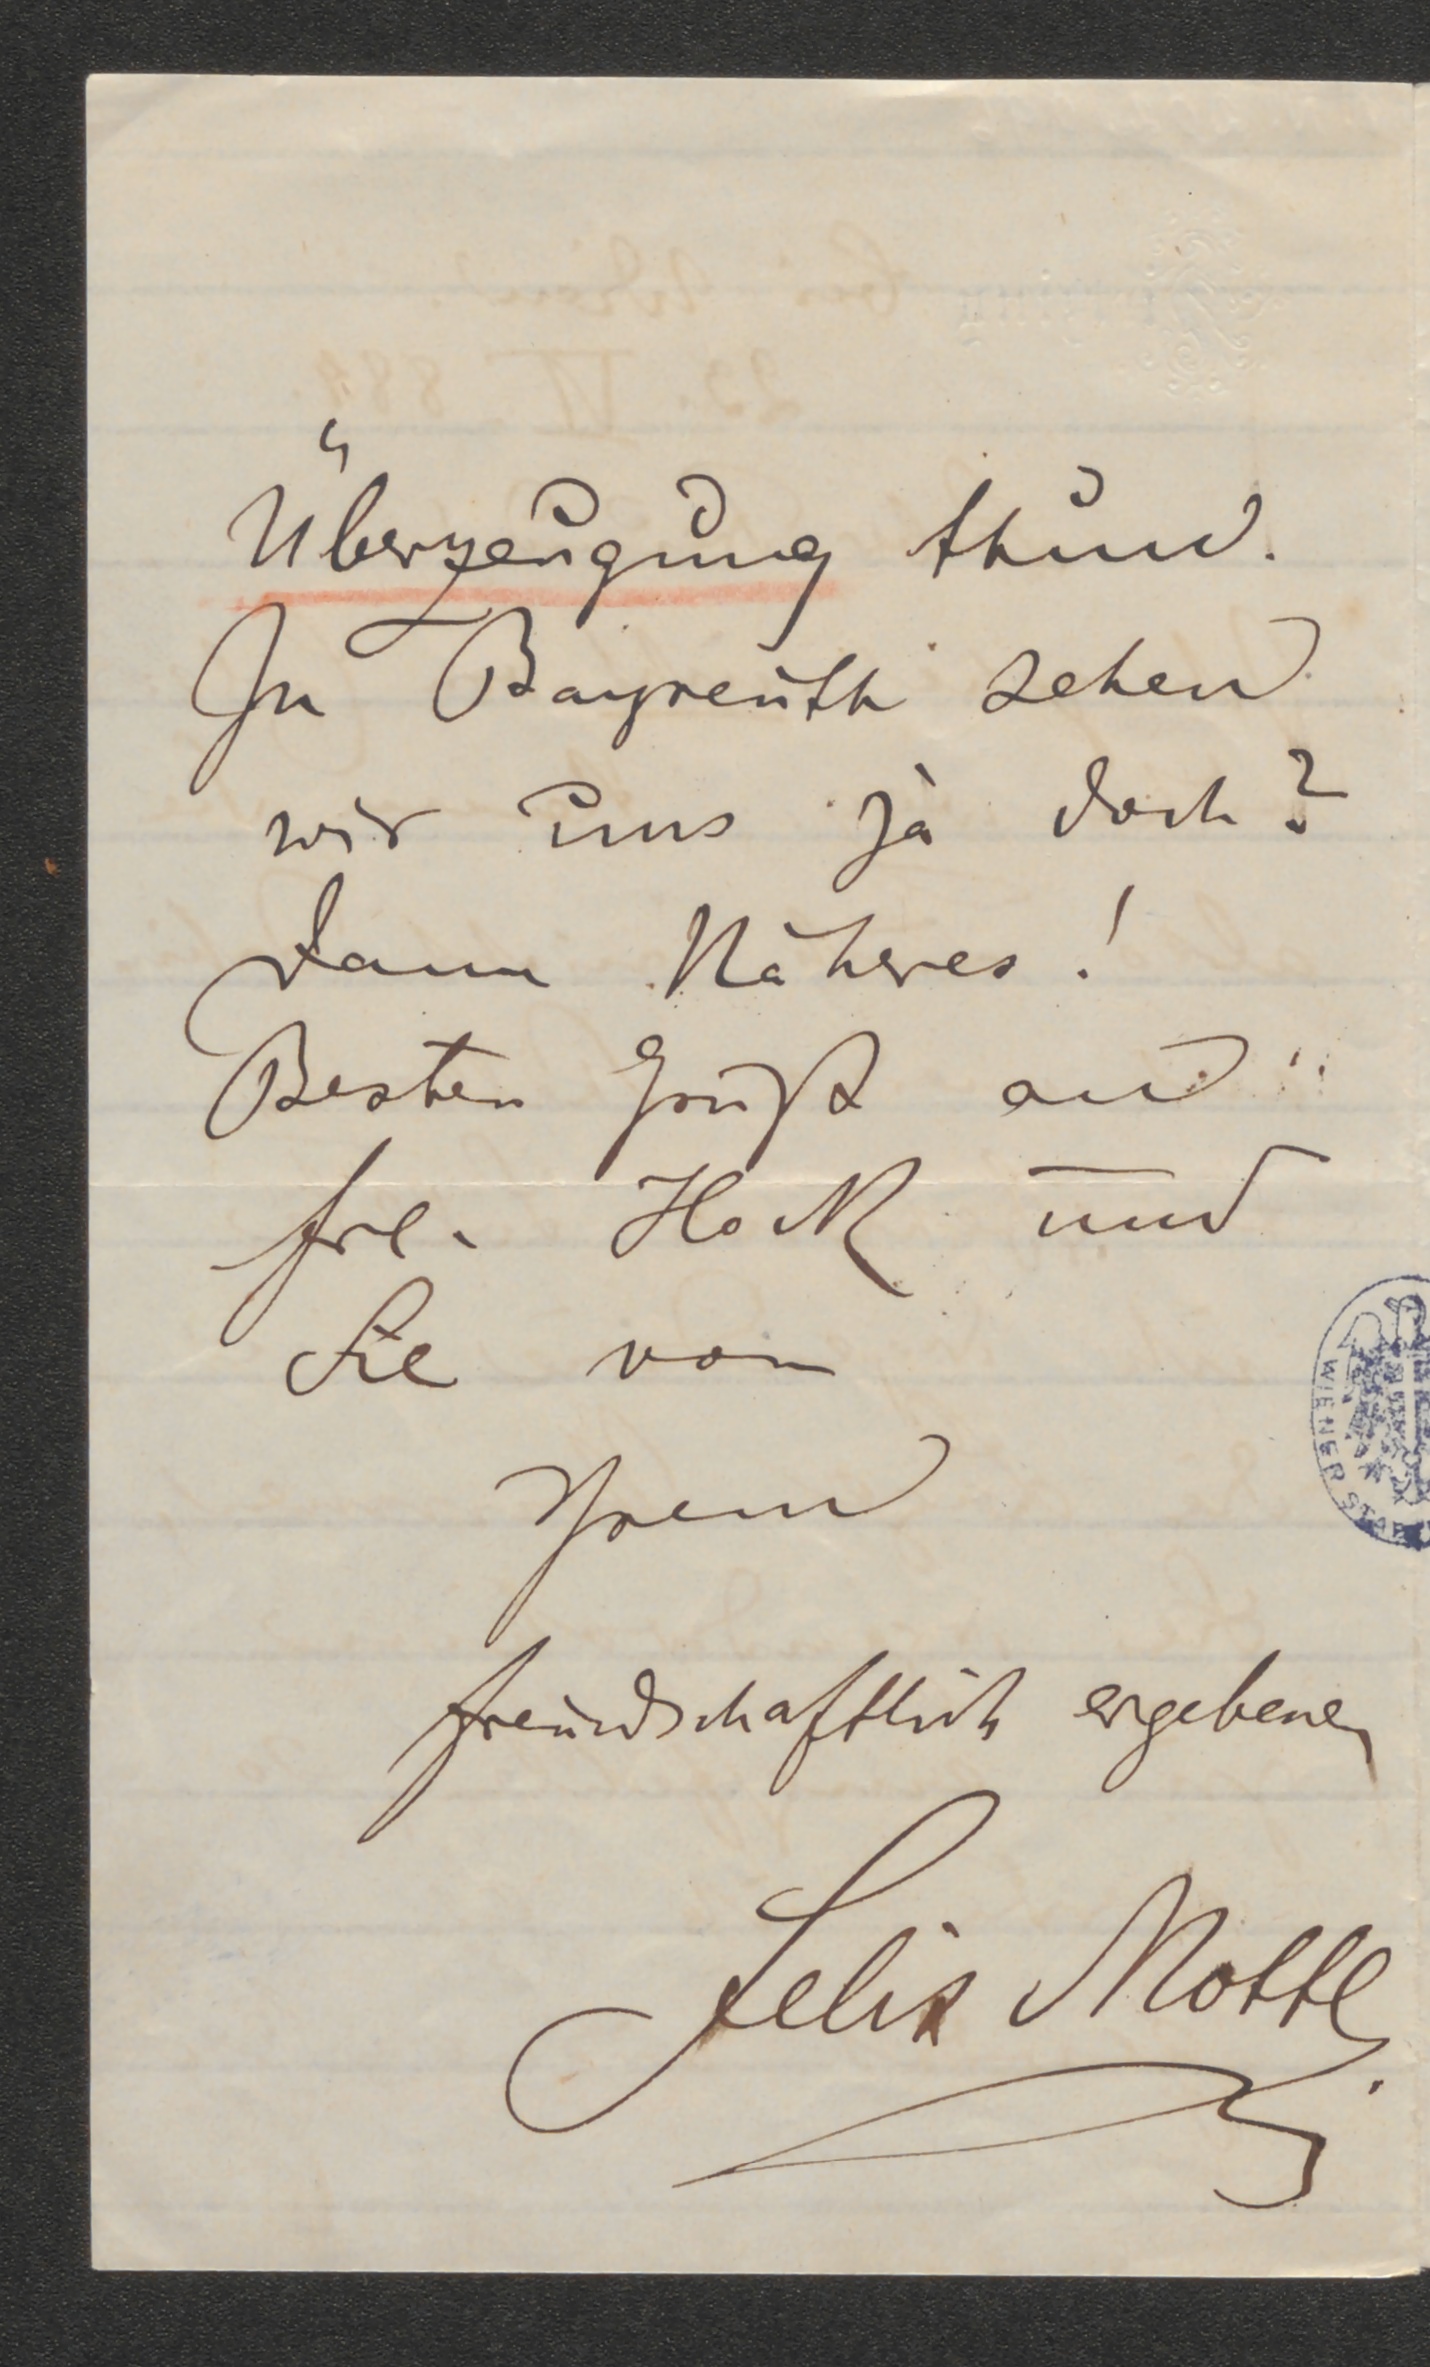 Überzeugung thun.
In Bayreuth sehen
wir uns ja doch?
Dann Näheres!
Besten Gruß an
Frl. Hock und
Sie von
Ihrem
freundschaftlich ergebenen
Felix Mottl.
WIENER STADT